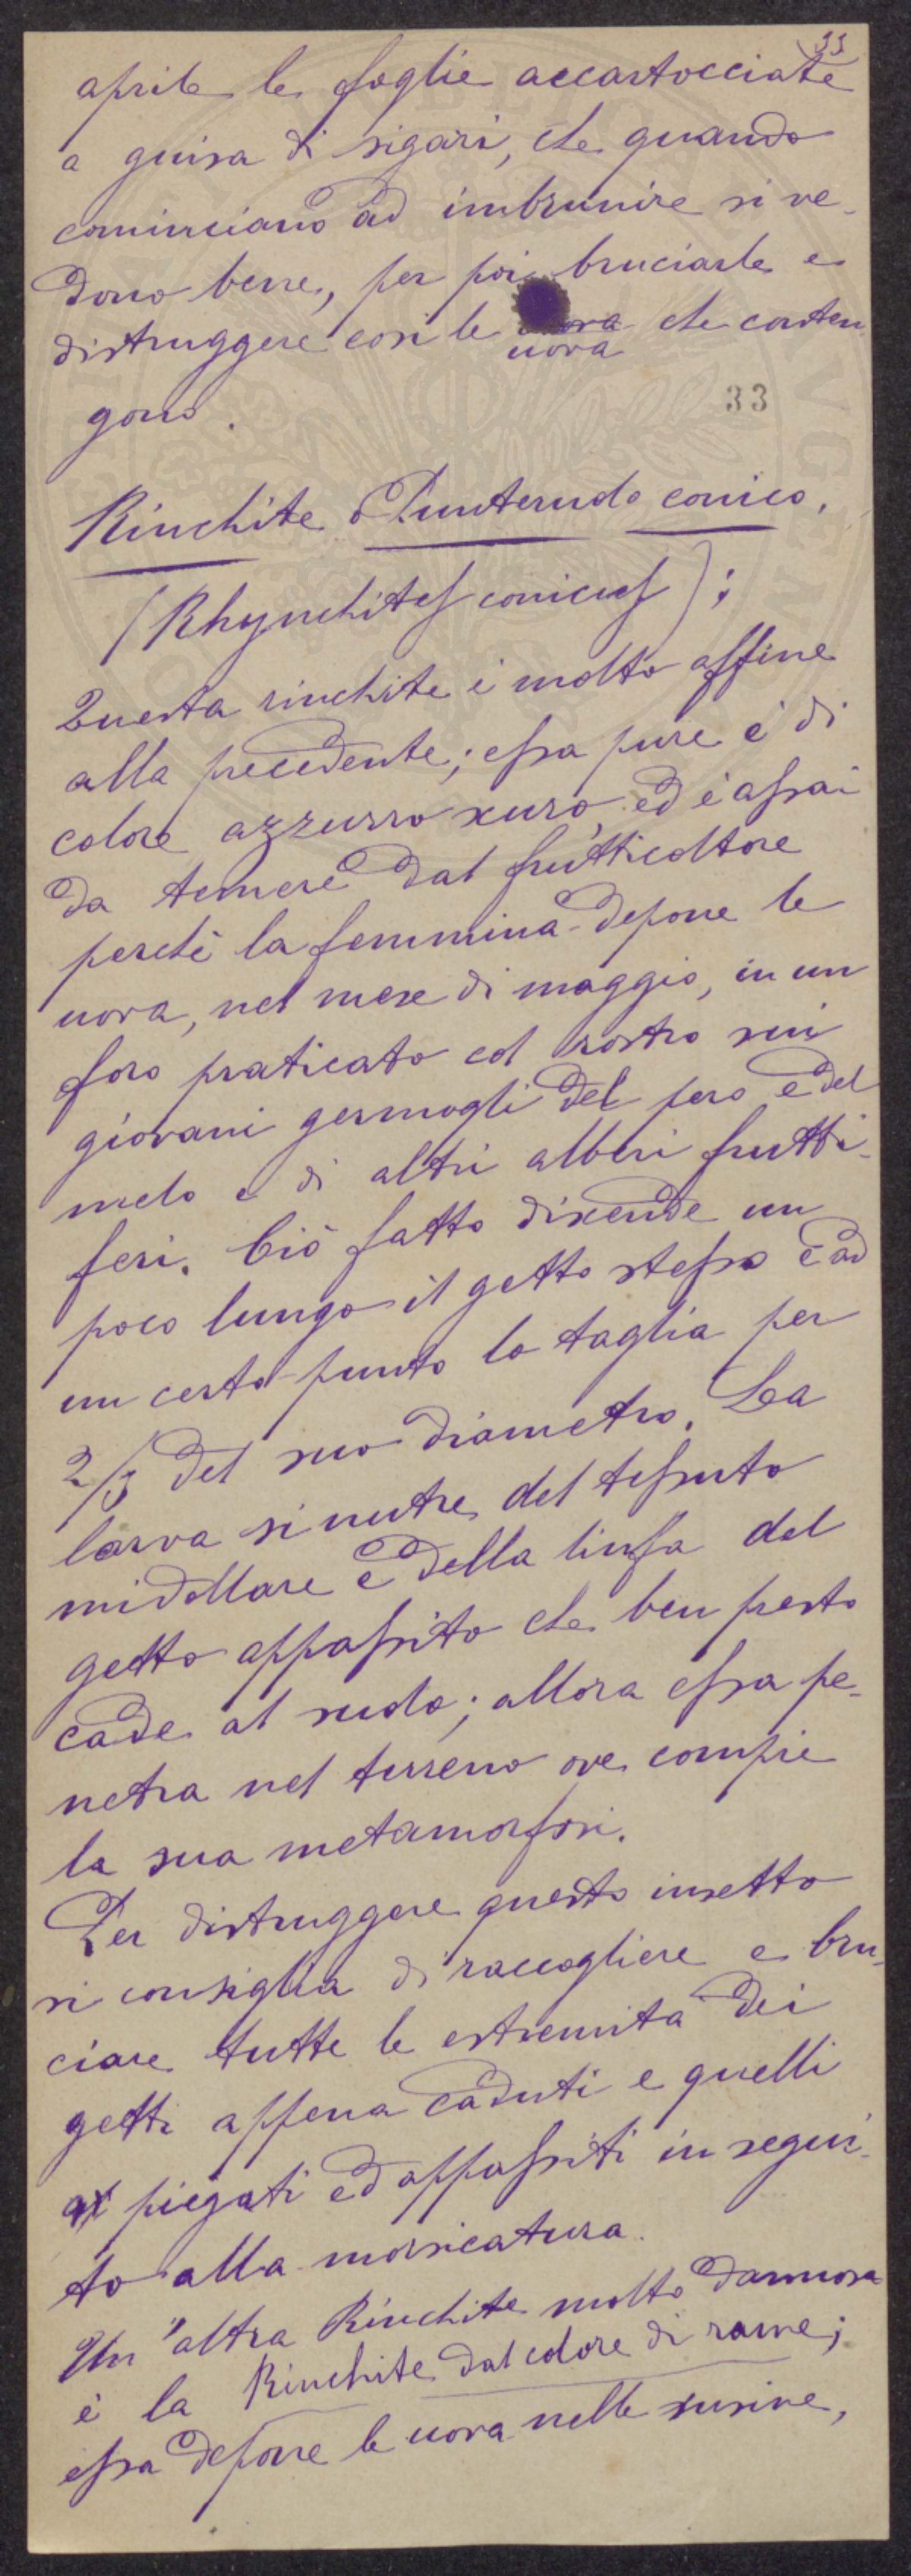 33
aprile le foglie accartocciate
a guisa di sigari, che quando
cominciano ad imbrunire si ve-
dono bene, per poi bruciarle e
distruggere così le uova che conten-
uova
gono.
33
Rinchite o Punteruolo conico.
(Rhynchites conicus);
Questa rinchite è molto affine
alla precedente; essa pure è di
colore azzurro scuro, ed è assai
da temere dal frutticoltore
perchè la femmina depone le
uova, nel mese di maggio, in un
foro praticato col rostro sui
giovani germogli del pero e del
melo e di altri alberi frutti-
feri. Ciò fatto discende un
poco lungo il getto stesso e ad
un certo punto lo taglia per
2/3 del suo diametro. La
larva si nutre del tessuto
midollare e della linfa del
getto appassito che ben presto
cade al suolo; allora essa pe-
netra nel terreno ove compie
la sua metamorfosi.
Per distruggere questo insetto
si consiglia di raccogliere e bru-
ciare tutte le estremità dei
getti appena caduti e quelli
piegati ed appassiti in segui-
to alla morsicatura.
Un'altra Rinchite molto dannosa
è la Rinchite dal colore di rame;
essa depone le uova nelle susine,